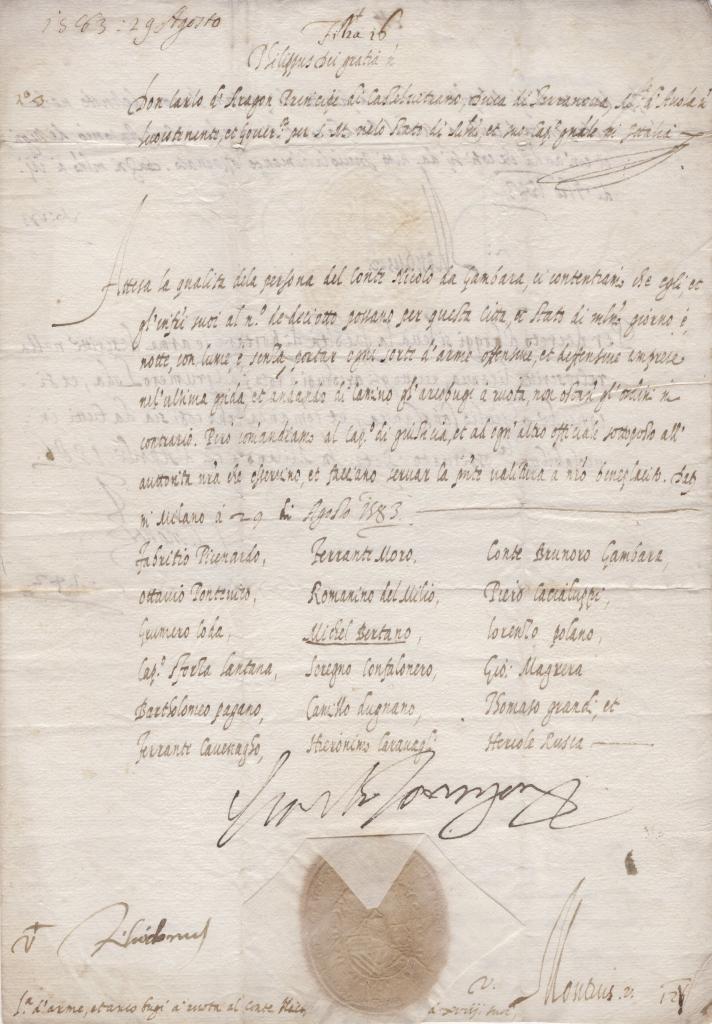 1583: 29 Agosto
Filza 16
Philippus Dei gratia
Don Carlo d' Aragon Principe di Castelvetrano, Duca di Terranova,
locotenente, et Gover.re per S. M. nelo Stato di Mil.o, et suo Cap.o gnale in Italia
Attesa la qualità dela persona del Conte Nicolò da Gambara, ci contentiamo che egli, et
gl'infri suoi al n.o de deciotto possano per questa Città, et Stato di mlno giorno, è
notte, con lume è senza portar ogni sorte d'arme offensive, et deffensive
nel'ultima grida et andando di camino gl'arcobugi à ruota, non ostan.ti gl'ordini in
contrario. Però comandiamo al Cap.o di giusticia, et ad ogn' altro officiale sottoposto all'
auttorità nrà che osservino, et facciano servar la pnte valitura à nrò beneplacito. Dat
in Milano à 29 di Agosto 1583.
Fabritio Picenardo, Ferrante Moro, Conte Brunoro Gambara,
Ottavio Pontevico, Romanino del Milio, Piero Caccialuppi,
Grumero Coda, Michel Bertano, Lorenzo polano,
Cap.o Sforza Santana, Soregno Confalonero, Gio: Magrera
Bartholomeo pagano, Camillo dugnano, Thomaso grandi, et
Ferrante Cavenagho, Hieronimo Caravagi, Hercole Rusca
V.t
V.
Montius
d'arme, et arcobugi à ruota al Conte